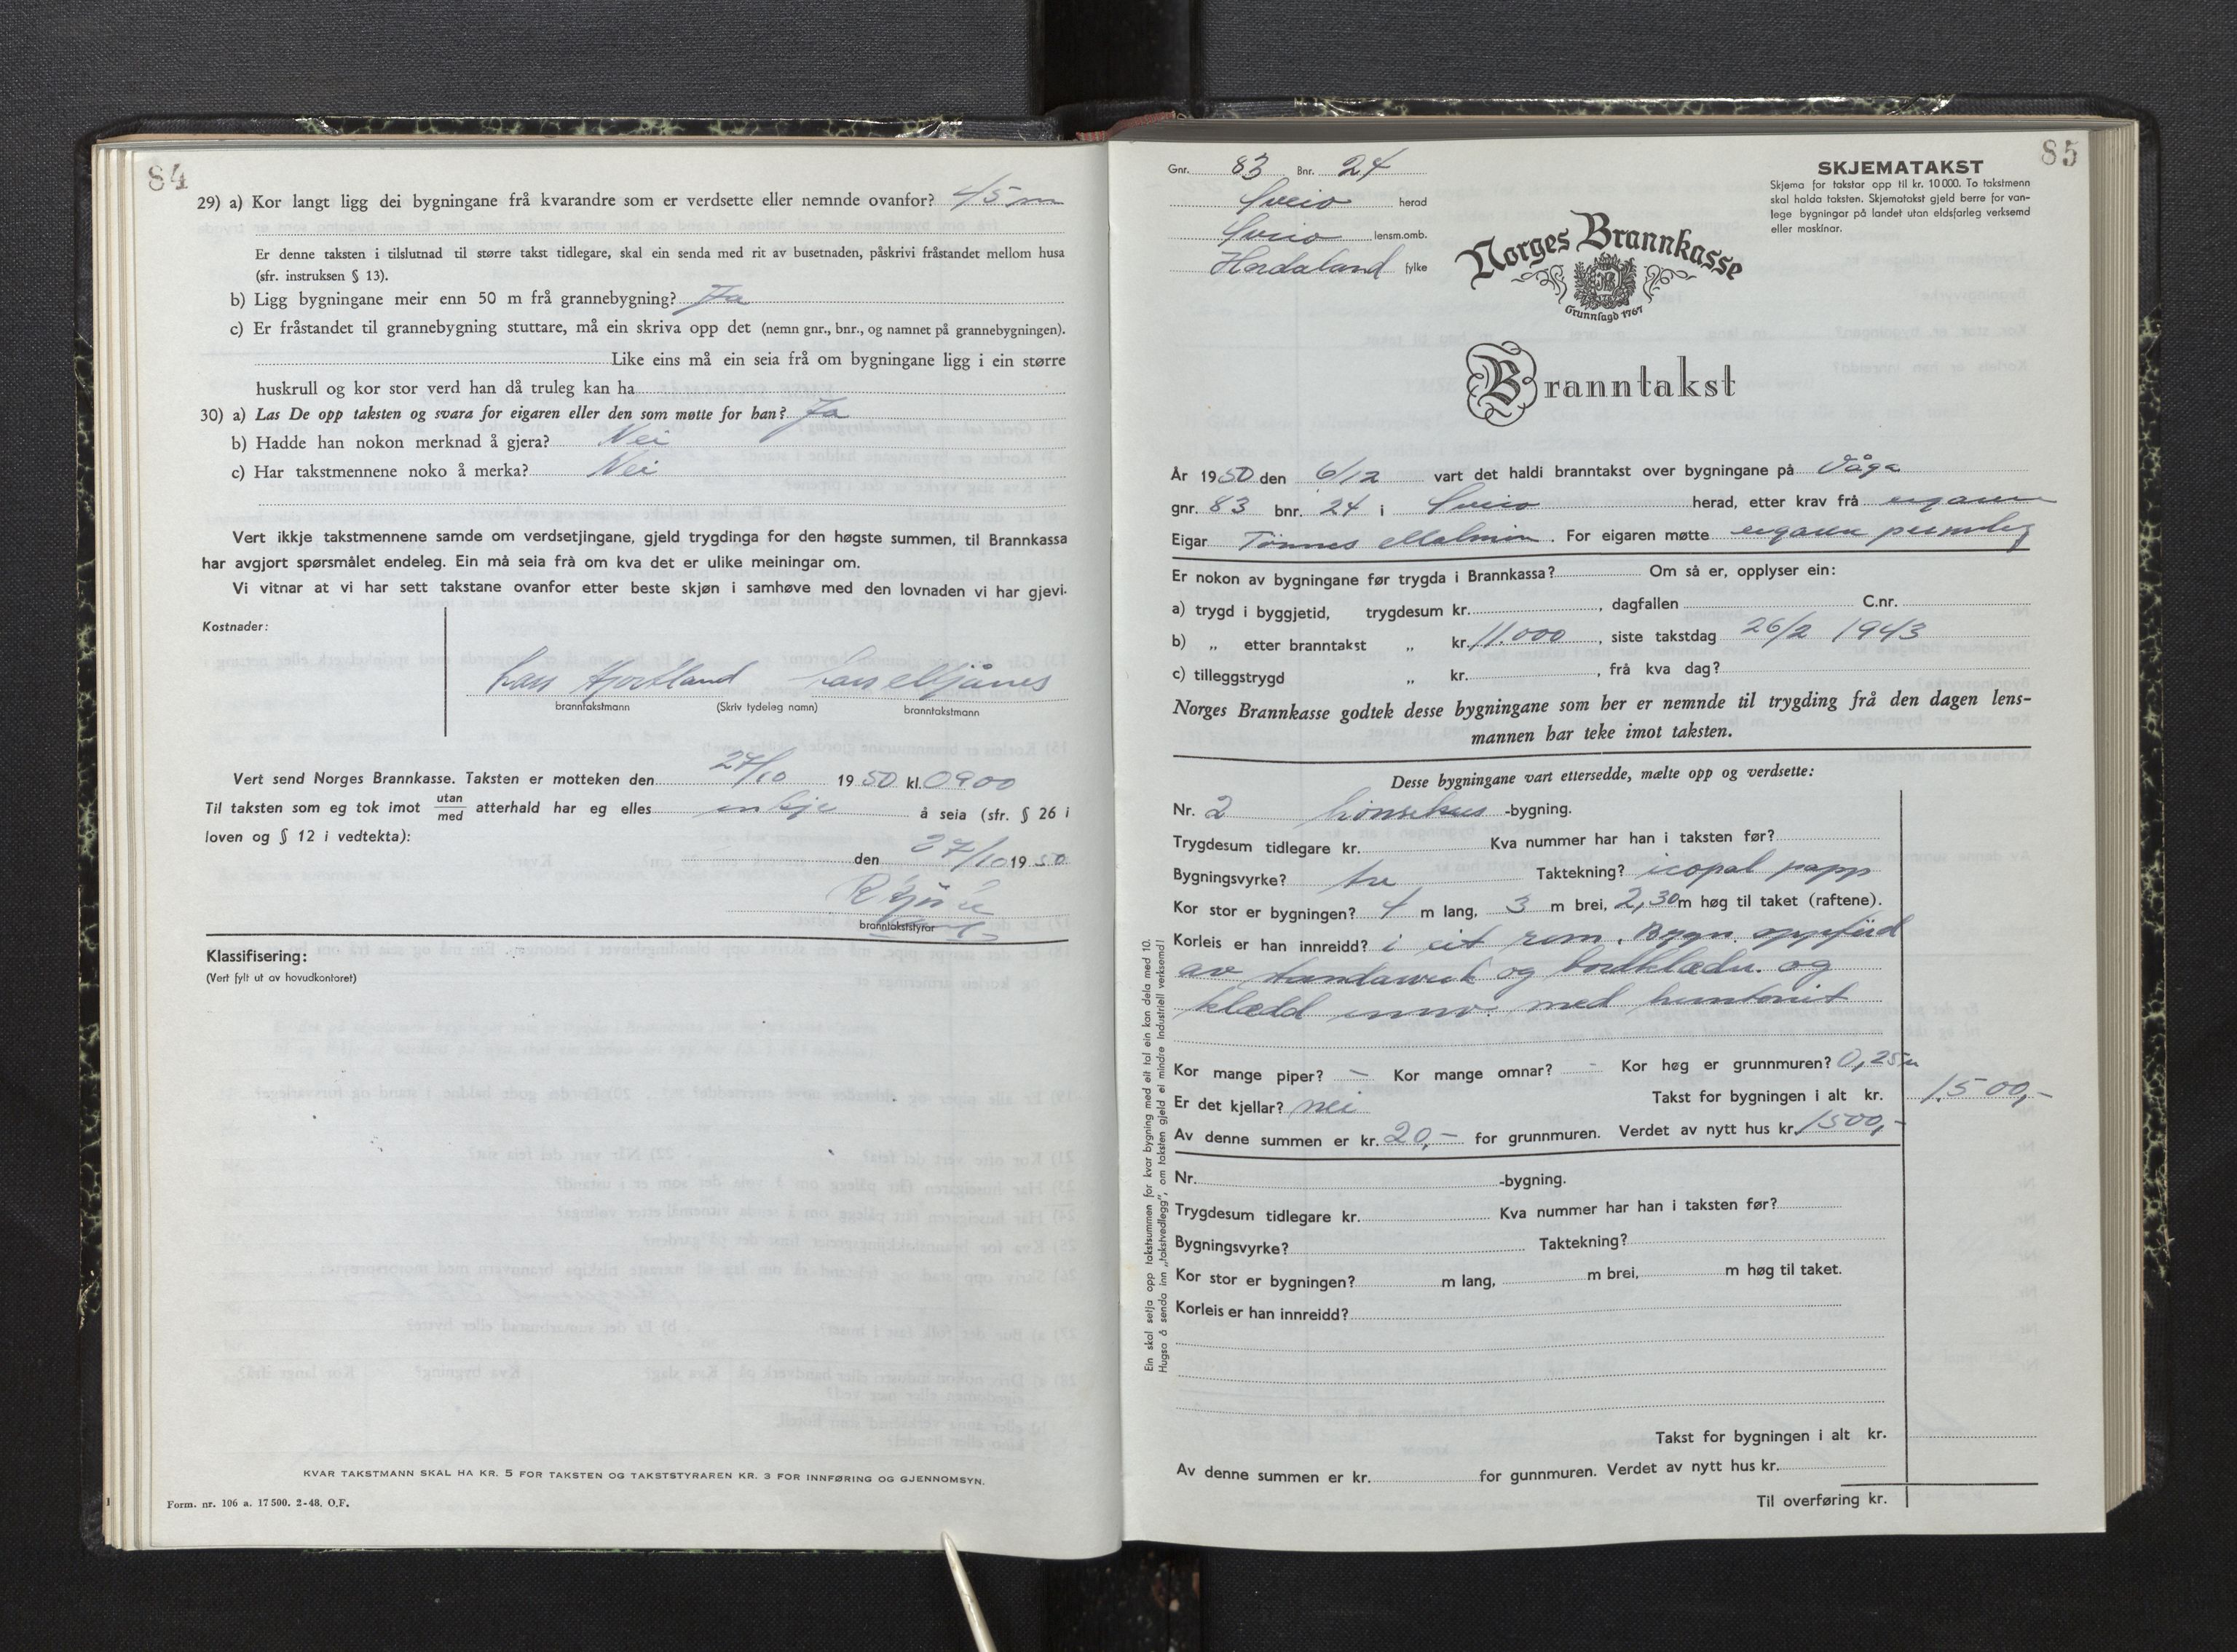 84
29) a) Kor langt ligg dei bygningane frå kvarandre som er verdsette eller nemnde ovanfor? 45 m
Er denne taksten i tilslutnad til større takst tidlegare, skal ein senda med rit av busetnaden, påskrivi fråstandet mellom husa
(sfr. instruksen § 13).
b) Ligg bygningane meir enn 50 m frå grannebygning? Ja
c) Er fråstandet til grannebygning stuttare, må ein skriva opp det (nemn gnr., bnr., og namnet på grannebygningen).
Like eins må ein seia frå om bygningane ligg i ein større
huskrull og kor stor verd han då truleg kan ha
30) a) Las De opp taksten og svara for eigaren eller den som møtte for han? Ja
b) Hadde han nokon merknad å gjera? Nei
c) Har takstmennene noko å merka? Nei
Vert ikkje takstmennene samde om verdsetjingane, gjeld trygdinga for den høgste summen, til Brannkassa
har avgjort spørsmålet endeleg. Ein må seia frå om kva det er ulike meiningar om.
Vi vitnar at vi har sett takstane ovanfor etter beste skjøn i samhøve med den lovnaden vi har gjevi.
Kostnader:
Lars
branntakstmann (Skriv tydeleg namn) branntakstmann
Vert send Norges Brannkasse. Taksten er motteken den 27/10 1950 kl. 0900
Til taksten som eg tok imot utan/med atterhald har eg elles å seia (sfr. § 26 i
loven og § 12 i vedtekta):
den 27/10 1950
branntakststyrar
Klassifisering:
(Vert fylt ut av hovudkontoret)
KVAR TAKSTMANN SKAL HA KR. 5 FOR TAKSTEN OG TAKSTSTYRAREN KR. 3 FOR INNFØRING OG GJENNOMSYN.
Form. nr. 106 a. 17 500. 2-48. O.F.
85
Gnr. 83 Bnr. 24
Sveio herad
Sveio lensm.omb.
Hordaland fylke
SKJEMATAKST
Skjema for takstar opp til kr. 10 000. To takstmenn
skal halda taksten. Skjematakst gjeld berre for van-
lege bygningar på landet utan eldsfarleg verksemd
eller maskinar.
Norges Brannkasse
Grunnlagd 1767
Branntakst
År 1950 den 6/12 vart det haldi branntakst over bygningane på Våga
gnr. 83 bnr. 24 i Sveio herad, etter krav frå eigaren
Eigar Tønnes Malmin. For eigaren møtte eigaren personleg
Er nokon av bygningane før trygda i Brannkassa? Om så er, opplyser ein:
a) trygd i byggjetid, trygdesum kr. , dagfallen C.nr.
b) „ etter branntakst „ kr. 11.000, siste takstdag 26/2 1943
c) tilleggstrygd „ kr. , frå kva dag?
Norges Brannkasse godtek desse bygningane som her er nemnde til trygding frå den dagen lens-
mannen har teke imot taksten.
Desse bygningane vart ettersedde, mælte opp og verdsette:
Nr. 2 hønsehus -bygning.
Trygdesum tidlegare kr. Kva nummer har han i taksten før?
Bygningsvyrke? tre Taktekning? icopal papp
Kor stor er bygningen? 4 m lang, 3 m brei, 2,30 m høg til taket (raftene).
Korleis er han innreidd? i eit rom. Bygn. oppførd
av og bordklædn. og
klædd innv. med huntonit
Kor mange piper? – Kor mange omnar? – Kor høg er grunnmuren? 0,25 m
Er det kjellar? nei Takst for bygningen i alt kr. 1.500,-
Av denne summen er kr. 20,- for grunnmuren. Verdet av nytt hus kr. 1500,-
Nr. -bygning.
Trygdesum tidlegare kr. Kva nummer har han i taksten før?
Bygningsvyrke? Taktekning?
Kor stor er bygningen? m lang, m brei, m høg til taket.
Korleis er han innreidd?
Takst for bygningen i alt kr.
Av denne summen er kr. for gunnmuren. Verdet av nytt hus kr.
Til overføring kr.
Ein skal setja opp takstsummen for kvar bygning med eit tal ein kan dela med 10.
Hugsa å senda inn „takstvedlegg", om taksten gjeld ei mindre industriell verksemd!